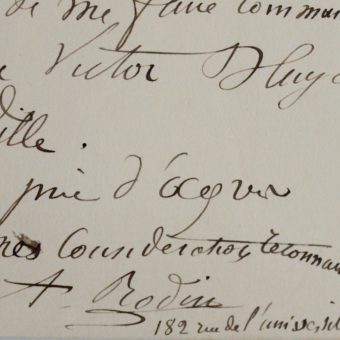 de me faire comman
Victor Hugo
ville.
prie d'agréer
mes Considération reconnai
A. Rodin
182 rue de l'université